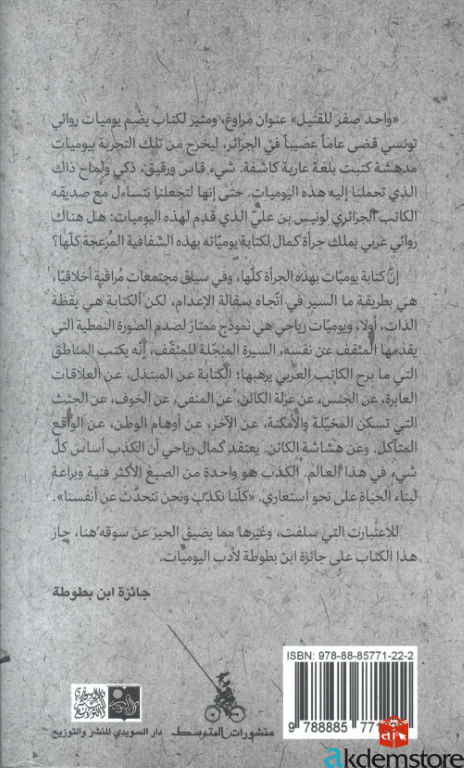 «واحد صفر للقتيل» عنوان مراوغ، ومثير لكتاب يضم يوميات روائي
تونسي قضى عاماً عصيباً في الجزائر، ليخرج من تلك التجربة بيوميات
مدهشة كتبت بلغة عارية كاشفة. شيء قاس ورقيق، ذكي ولماح ذاك
الذي تحملنا إليه هذه اليوميات. حتى إنها لتجعلنا نتساءل مع صديقه
الكاتب الجزائري لونيس بن علي الذي قدم لهذه اليوميات: هل هناك
روائي عربي يملك جرأة كمال لكتابة يومياته بهذه الشفافية المزعجة كلها؟
إن كتابة يوميات بهذه الجرأة كلها، وفي سياق مجتمعات مراقبة أخلاقيا،
هي بطريقة ما السير في اتجاه سقالة الإعدام، لكن الكتابة هي يقظة
الذات، أولا، ويوميات رياحي هي نموذج ممتاز لصدم الصورة النمطية التي
يقدمها المثقف عن نفسه، السيرة المبجلة للمثقف، إنه يكتب المناطق
التي ما برح الكاتب العربي يرهبها: الكتابة عن المبتذل، عن العلاقات
العابرة، عن الجنس، عن عزلة الكائن، عن المنفى، عن الخوف، عن الجثث
التي تسكن المخيلة والأمكنة، عن الآخر، عن أوهام الوطن، عن الواقع
المتآكل. وعن هشاشة الكائن. يعتقد كمال رياحي أن الكذب أساس كل
شيء في هذا العالم. الكذب هو واحدة من الصيغ الأكثر فنية وبراعة
لبناء الحياة على نحو استعاري. «كلنا نكذب ونحن نتحدث عن أنفسنا».
للاعتبارت التي سلفت، وغيرها مما يضيق الحيز عن سوقه هنا، حاز
هذا الكتاب على جائزة ابن بطوطة لأدب اليوميات.
جائزة ابن بطوطة
ISBN: 978-88-85771-22-2
9 788885 771
منشورات المتوسط
دار السويدي للنشر والتوزيع
akdemstore